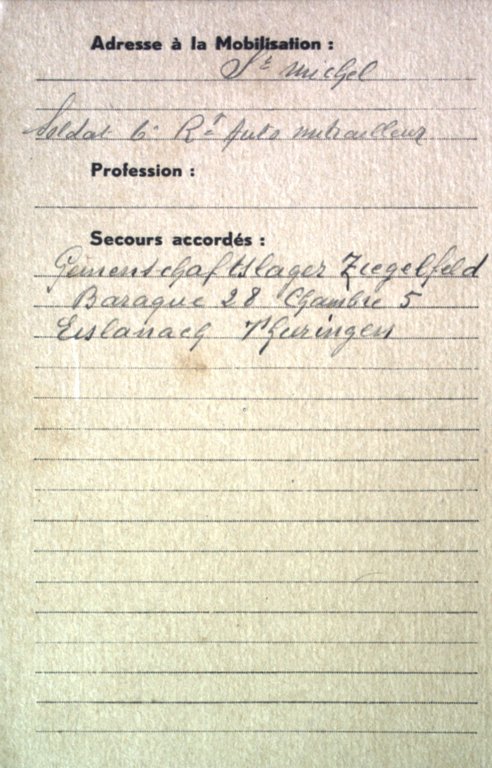 Adresse à la Mobilisation :
St michel
Soldat 6e Rt Auto mitrailleur
Profession :
Secours accordés :
Gemenschaftslager Ziegelfeld
Baraque 28 Chambre 5
Eislanach Thuringen